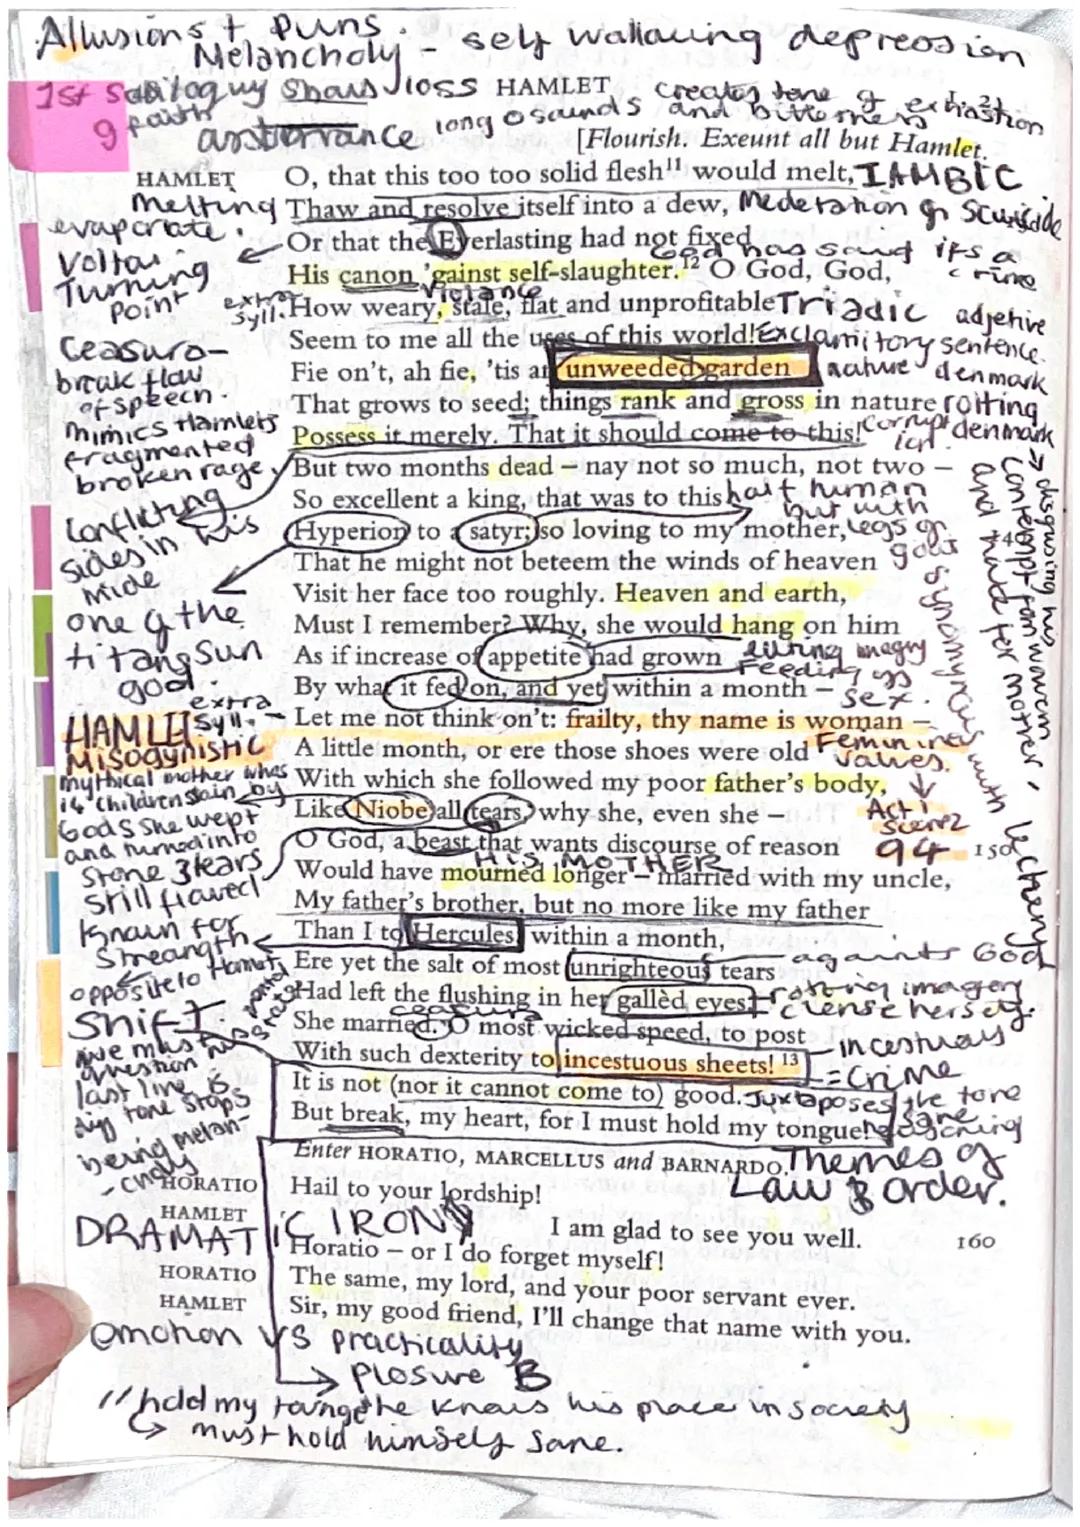 Allusions + puns.
Melancholy - self wallowing depression
1st soliloquy shows loss
g faith
HAMLET
creates tone of exhaustion
long o sounds and bitterness
[Flourish. Exeunt all but Hamlet.
HAMLET O, that this too too solid flesh¹¹ would melt, IAMBIC
melting Thaw and resolve itself into a dew,
evaporate.
Or that the Everlasting had not fixed
God has said its a crime
His canon 'gainst self-slaughter.¹² O God, God,
Voltai
Turning
Point
extra syll. How weary, stale, flat and unprofitable Triadic adjetive
Seem to me all the uses of this world! Exclamitory sentence.
Fie on't, ah fie, 'tis an unweeded garden nature denmark
Ceasura-
break flow
of speech.
mimics Hamlets
fragmented
broken rage
That grows to seed; things rank and gross in nature rotting
Possess it merely. That it should come to this! denmark
But two months dead – nay not so much, not two –
So excellent a king, that was to this half human
but with
legs of
goat
Conflicting
sides in his
Hyperion to a satyr; so loving to my mother,
That he might not beteem the winds of heaven
Visit her face too roughly. Heaven and earth,
one of the
titans sun
god.
Must I remember? Why, she would hang on him
As if increase of appetite had grown
Feeding
sex.
By what it fed on, and yet within a month –
extra
syll.
Let me not think on't: frailty, thy name is woman –
HAMLET
Misogynistic
A little month, or ere those shoes were old Feminine
values.
With which she followed my poor father's body,
Like Niobe all tears, why she, even she –
Act 1
scene 2
94
O God, a beast that wants discourse of reason 150
HIS MOTHER
Would have mourned longer – married with my uncle,
My father's brother, but no more like my father
mythical mother
Gods she wept
and turned into
stone tears
still flowed
Than I to Hercules, within a month,
Known for
Streangth
opposite to Hamlet
Ere yet the salt of most unrighteous tears againts God
Had left the flushing in her gallèd eyes, imagery
clense herself.
ceasura
She married. O most wicked speed, to post
With such dexterity to incestuous sheets!¹³ incestuous
= crime
Shift.
we must
question
last line is
tone stops
being melan-
It is not (nor it cannot come to) good. Juxtaposes the tone
But break, my heart, for I must hold my tongue!
Enter HORATIO, MARCELLUS and BARNARDO. Themes of
Law & order.
HORATIO Hail to your lordship!
HAMLET I am glad to see you well. 160
DRAMATIC IRONY
Horatio – or I do forget myself!
HORATIO The same, my lord, and your poor servant ever.
HAMLET Sir, my good friend, I'll change that name with you.
emotion vs practicality
"hold my tounge he knows his place in society
must hold himself sane.